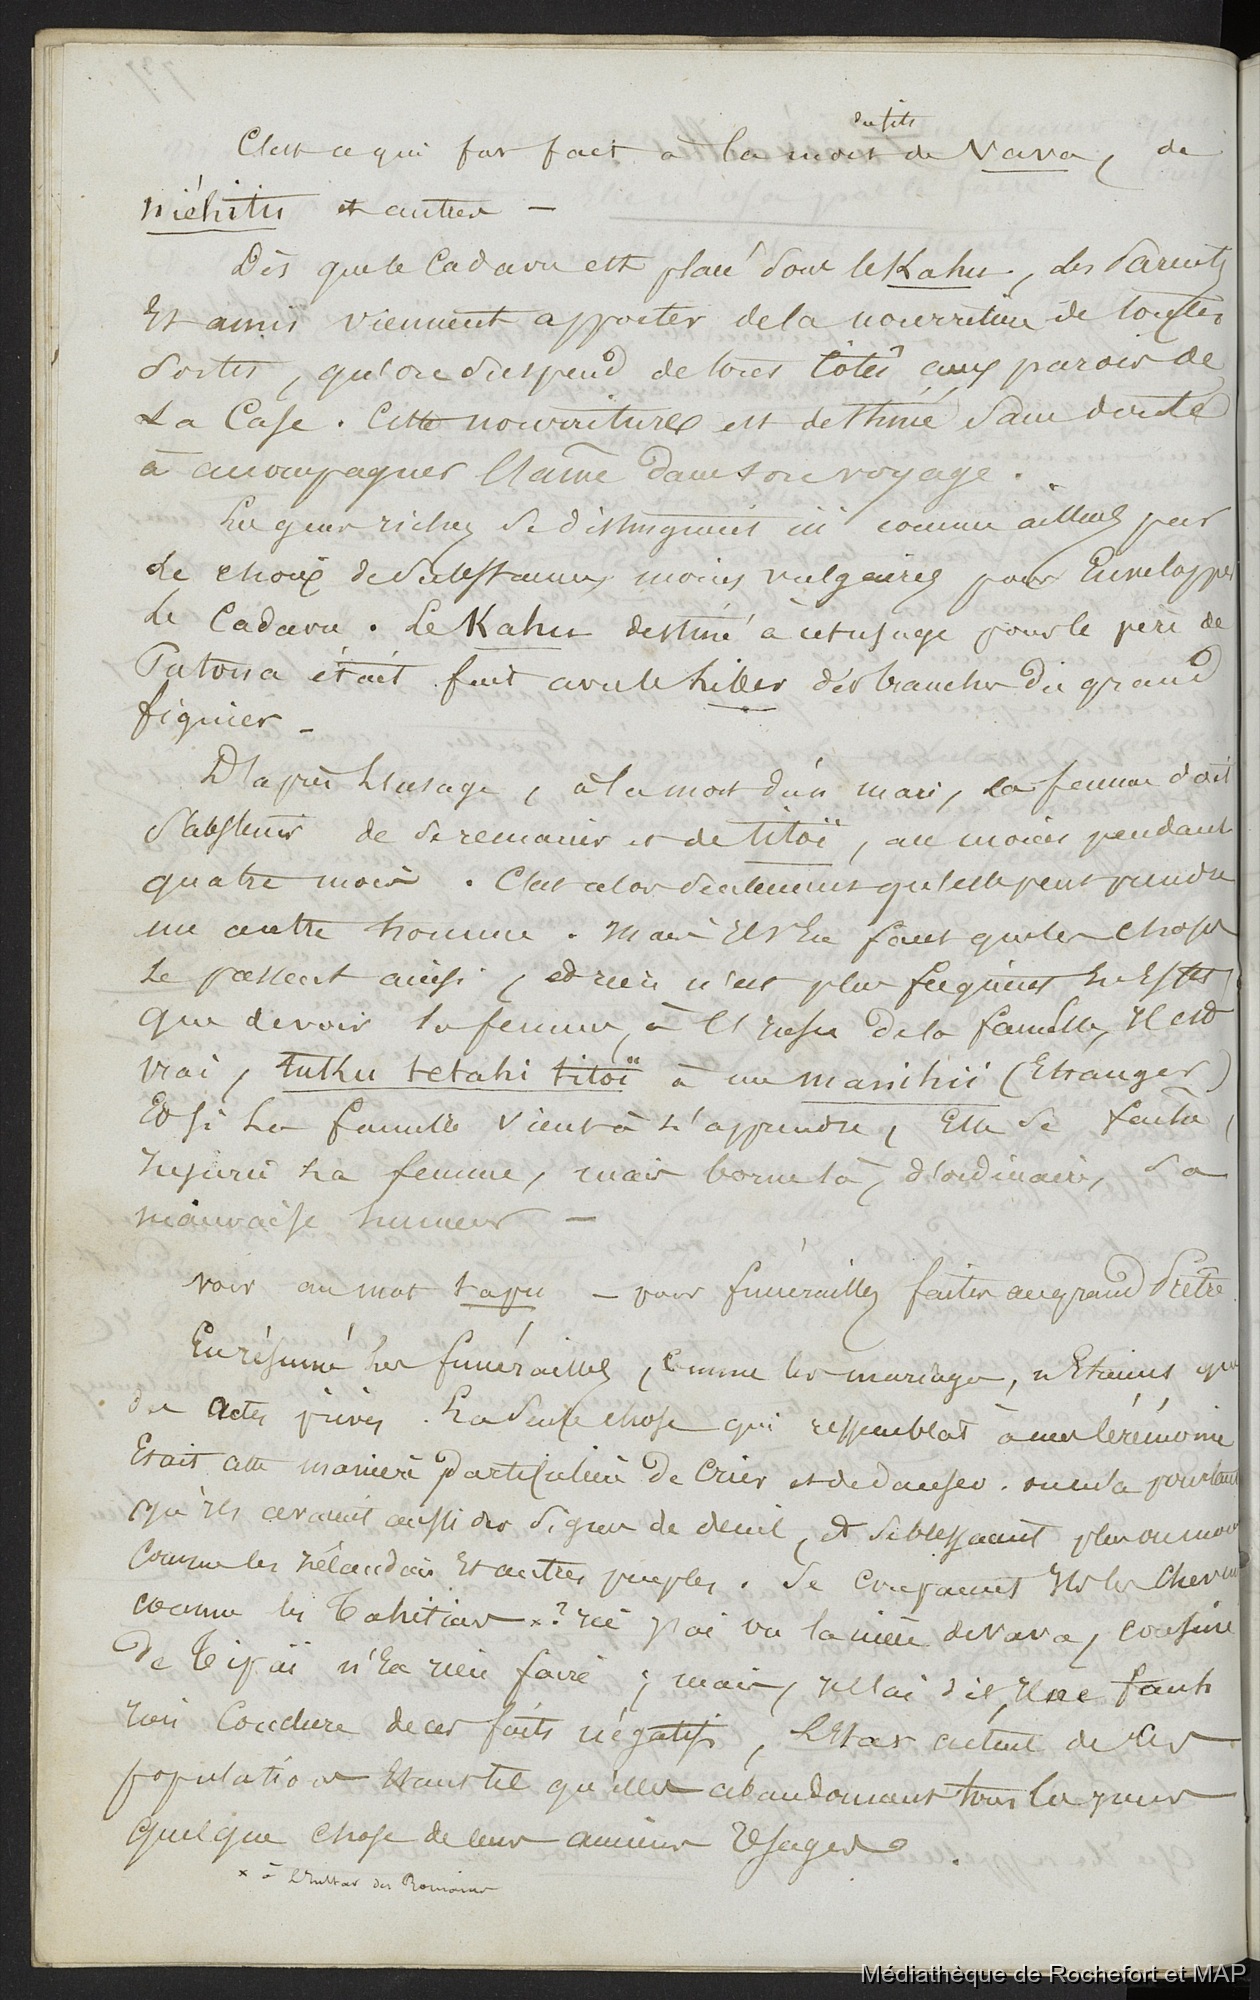 du fils
C'est ce qui fut fait à la mort de Vava, de
niéhitu et autres –
Dès que le Cadavre est placé sous le Kahu, les Parents
Et amis viennent apporter de la nourriture de toutes
Sortes, qu'on suspend de tous côtés aux parois de
La Case. Cette nourriture est destinée sans doute
à accompagner l'âme dans son voyage.
Les gens riches se distinguent ici comme ailleurs par
Le choix de substances moins vulgaires pour Envelopper
Le Cadavre. Le Kahu destiné à cet usage pour le père de
Patona était fait avec le des branches du grand
figuier –
D'après L'usage, à la mort d'un mari, La femme doit
S'abstenir de se remarier et de titoï, au moins pendant
quatre mois. C'est alors seulement qu'elle peut prendre
un autre homme. Mais Il s'en faut que les choses
Se passent ainsi, et rien n'est plus fréquent En effet
que de voir la femme, à l'insu de la famille, Il est
vrai, tuku tetahi titoï à un manihii (Etranger)
Et si La famille vient à l'apprendre, Elle se fâche,
Injurie La femme, mais borne là, d'ordinaire, Sa
mauvaise humeur –
voir au mot tapu – pour funérailles faites au grand Prêtre.
En résumé Les funérailles, comme les mariages, n'Etaient que
des actes privés. La seule chose qui ressemblât à une Cérémonie
Etait cette manière particulière de Crier et de danser. pourtant
qu'ils avaient aussi des signes de deuil, et se blessaient plus ou moins
Comme les Zélandais Et autres peuples. Se coupaient Ils les Cheveux
comme les Tahitiens x? J'ai vu la mère de Vava, cousine
De n'En rien faire; mais, Je l'ai dit, Il ne faut
rien Conclure de ces faits négatifs, L'Etat actuel de Ces
populations Etant tel qu'elles abandonnent tous les jours
quelque chose de leurs anciens Usages.
x à L'Instar des Romains
Médiathèque de Rochefort et MAP